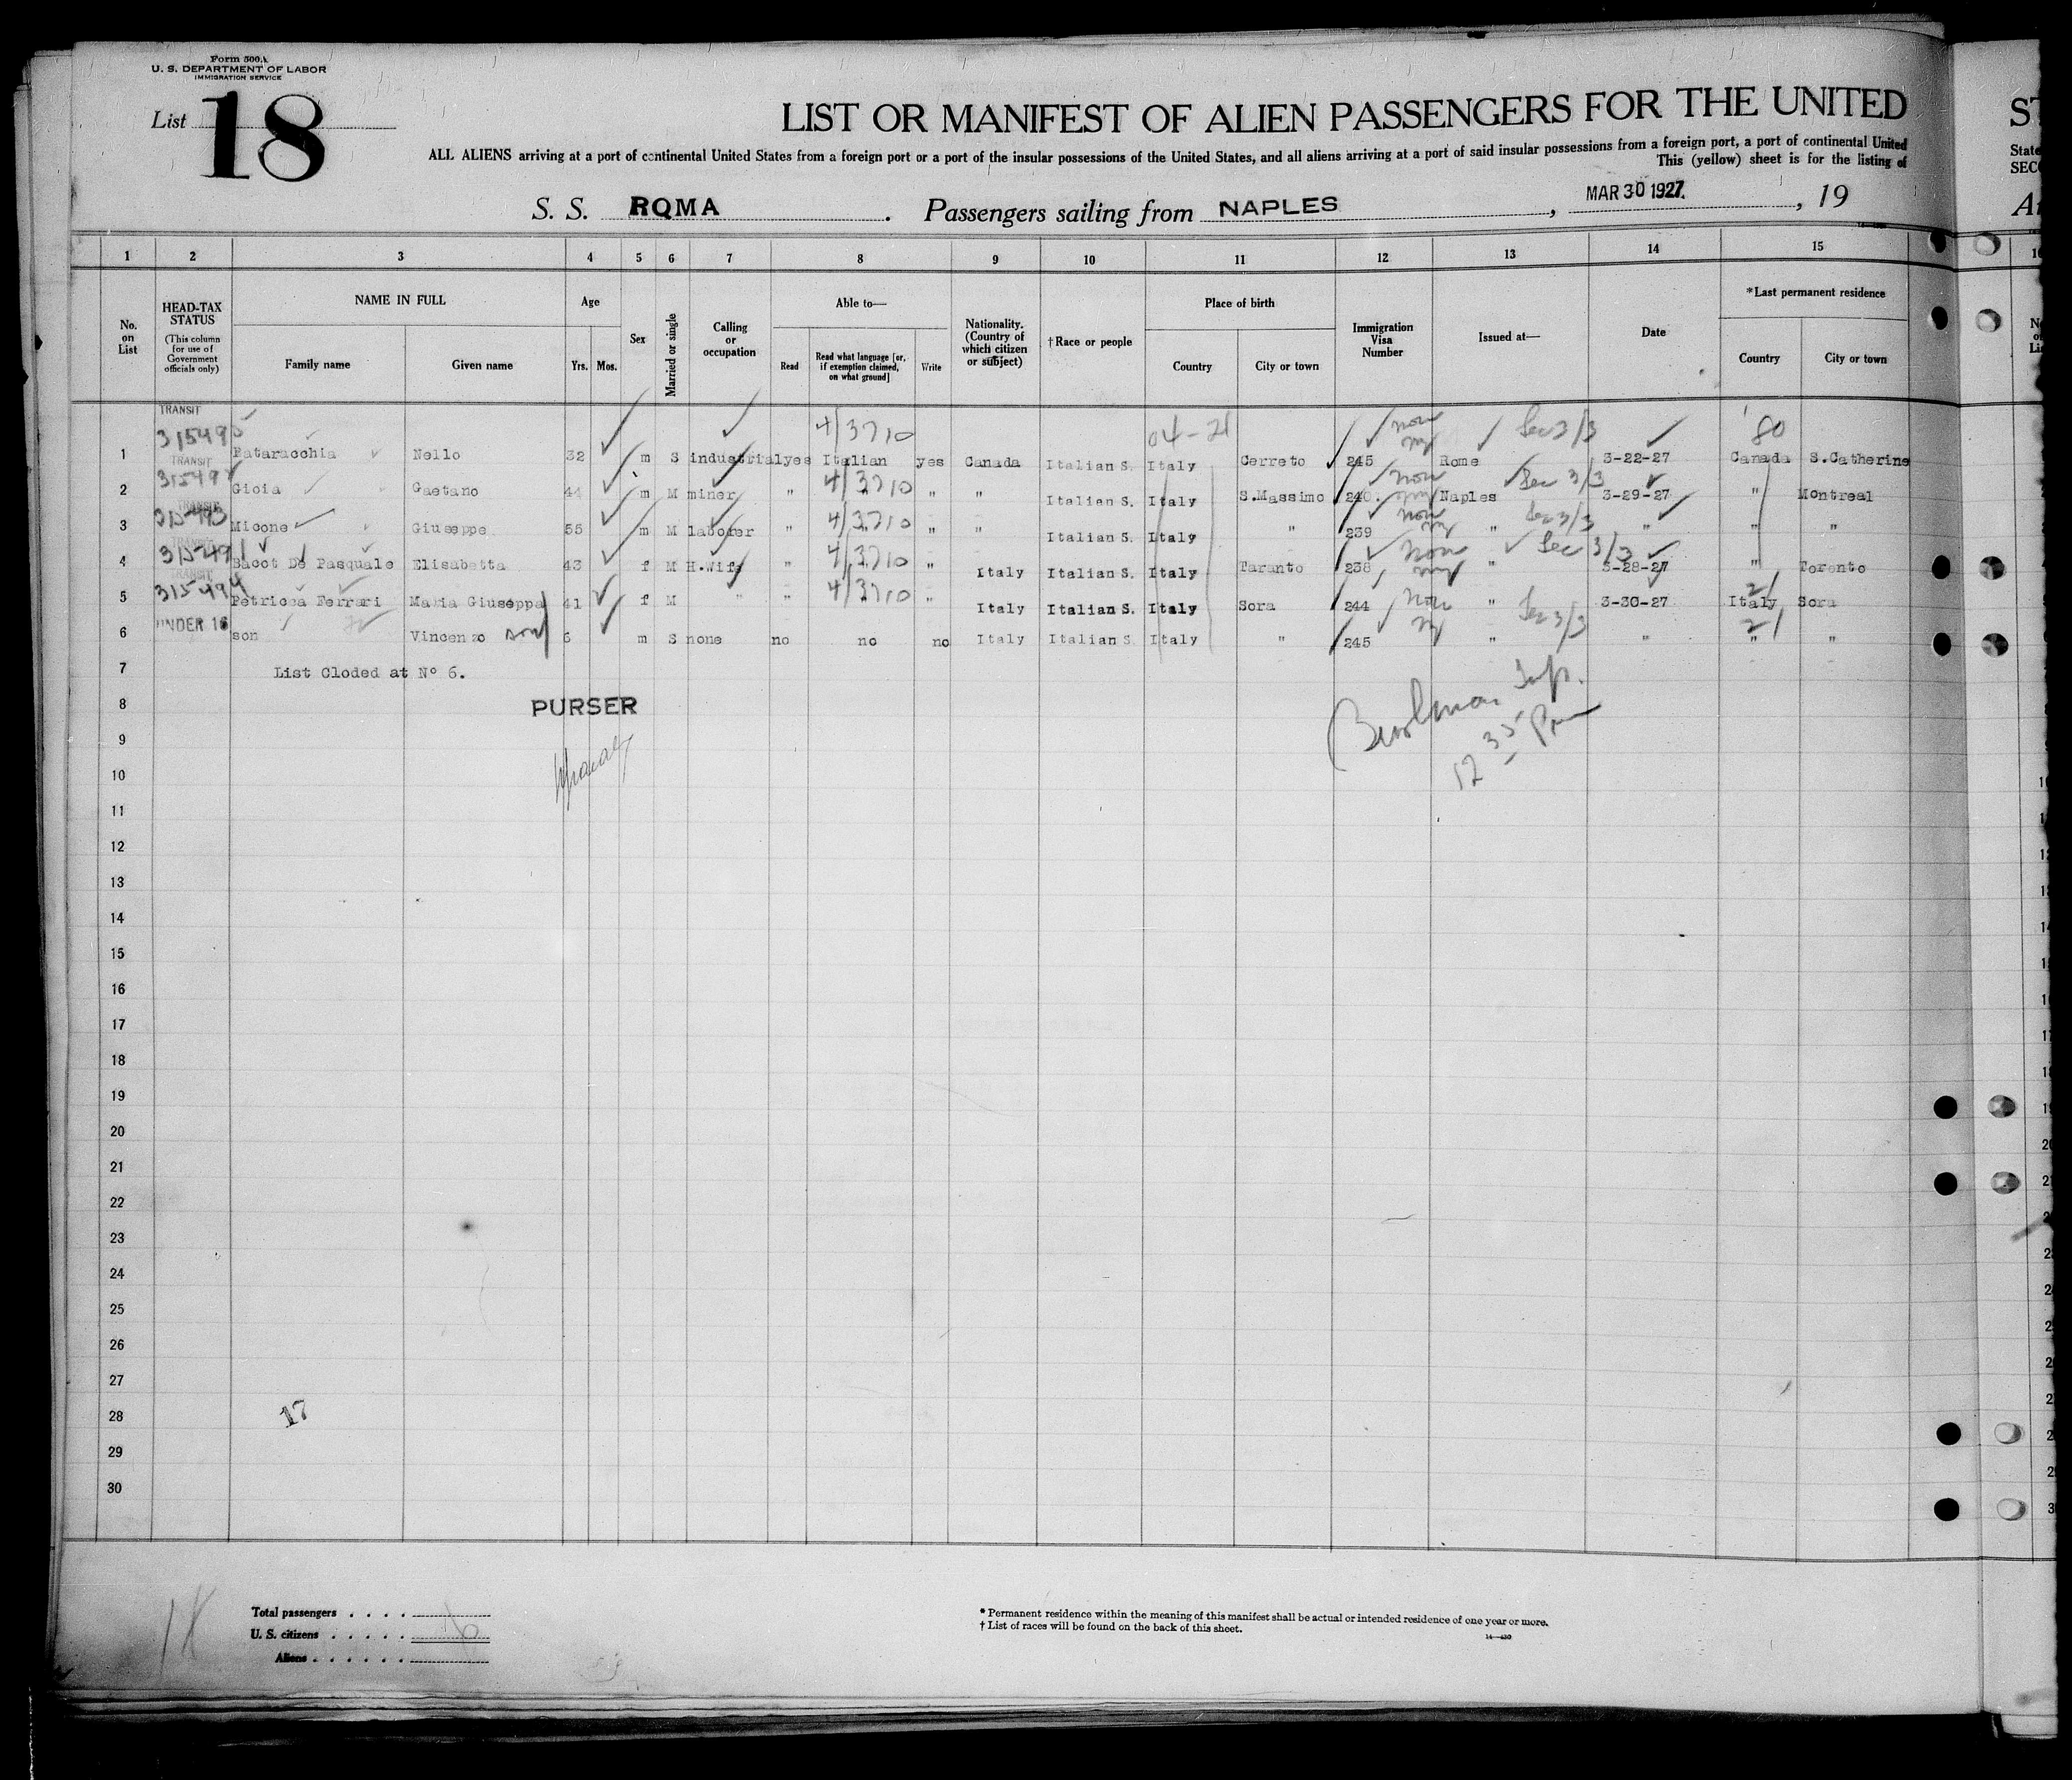 Form 500A
U. S. DEPARTMENT OF LABOR
IMMIGRATION SERVICE
List 18
LIST OR MANIFEST OF ALIEN PASSENGERS FOR THE UNITED
ST
ALL ALIENS arriving at a port of continental United States from a foreign port or a port of the insular possessions of the United States, and all aliens arriving at a port of said insular possessions from a foreign port, a port of continental United
State
This (yellow) sheet is for the listing of
SECO
S. S. ROMA. Passengers sailing from NAPLES, MAR 30 1927., 19
1 2 3 4 5 6 7 8 9 10 11 12 13 14 15
No. on List
HEAD-TAX STATUS
(This column for use of Government officials only)
NAME IN FULL
Family name Given name
Age
Yrs. Mos.
Sex
Married or single
Calling or occupation
Able to—
Read
Read what language [or, if exemption claimed, on what ground]
Write
Nationality. (Country of which citizen or subject)
†Race or people
Place of birth
Country City or town
Immigration Visa Number
Issued at—
Date
*Last permanent residence
Country City or town
TRANSIT 4/3710 04-21 non Sec 3/3 80
1 Pataracchia Nello 32 m S industrial yes Italian yes Canada Italian S. Italy Cerreto 245 Rome 3-22-27 Canada S.Catherine
TRANSIT 4/3710 non Sec 3/3
2 Gioia Gaetano 44 m M miner " " " " Italian S. Italy S.Massimo 240. Naples 3-29-27 " Montreal
TRANSIT 4/3710 non Sec 3/3
3 Micone Giuseppe 55 m M laborer " " " " Italian S. Italy " 239 " " " "
TRANSIT 315491 4/3710 non Sec 3/3
4 Sacot De Pasquale Elisabetta 43 f M H.Wife " " " Italy Italian S. Italy Taranto 238 " 3-28-27 " Toronto
TRANSIT 315494 4/3710 non 21
5 Petricca Ferrari Maria Giuseppa 41 f M " " " " Italy Italian S. Italy Sora 244 " 3-30-27 Italy Sora
UNDER 16 Sec 3/3 21
6 son Vincenzo son 6 m S none no no no Italy Italian S. Italy " 245 " " " "
7 List Cloded at Nº 6.
8 PURSER
Insp.
12 35 Pm
9
10
11
12
13
14
15
16
17
18
19
20
21
22
23
24
25
26
27
28 17
29
30
18
Total passengers . . . .
U. S. citizens . . . . . 6
Aliens . . . . . .
* Permanent residence within the meaning of this manifest shall be actual or intended residence of one year or more.
† List of races will be found on the back of this sheet.
14—430